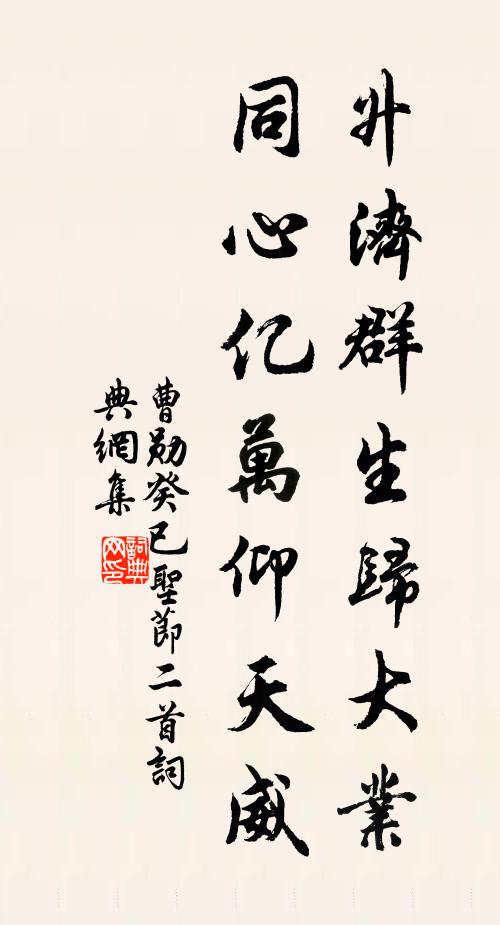 升濟群生歸大業
同心亿萬仰天威
曹勛癸巳聖節二首詞
典網集
詞典網印